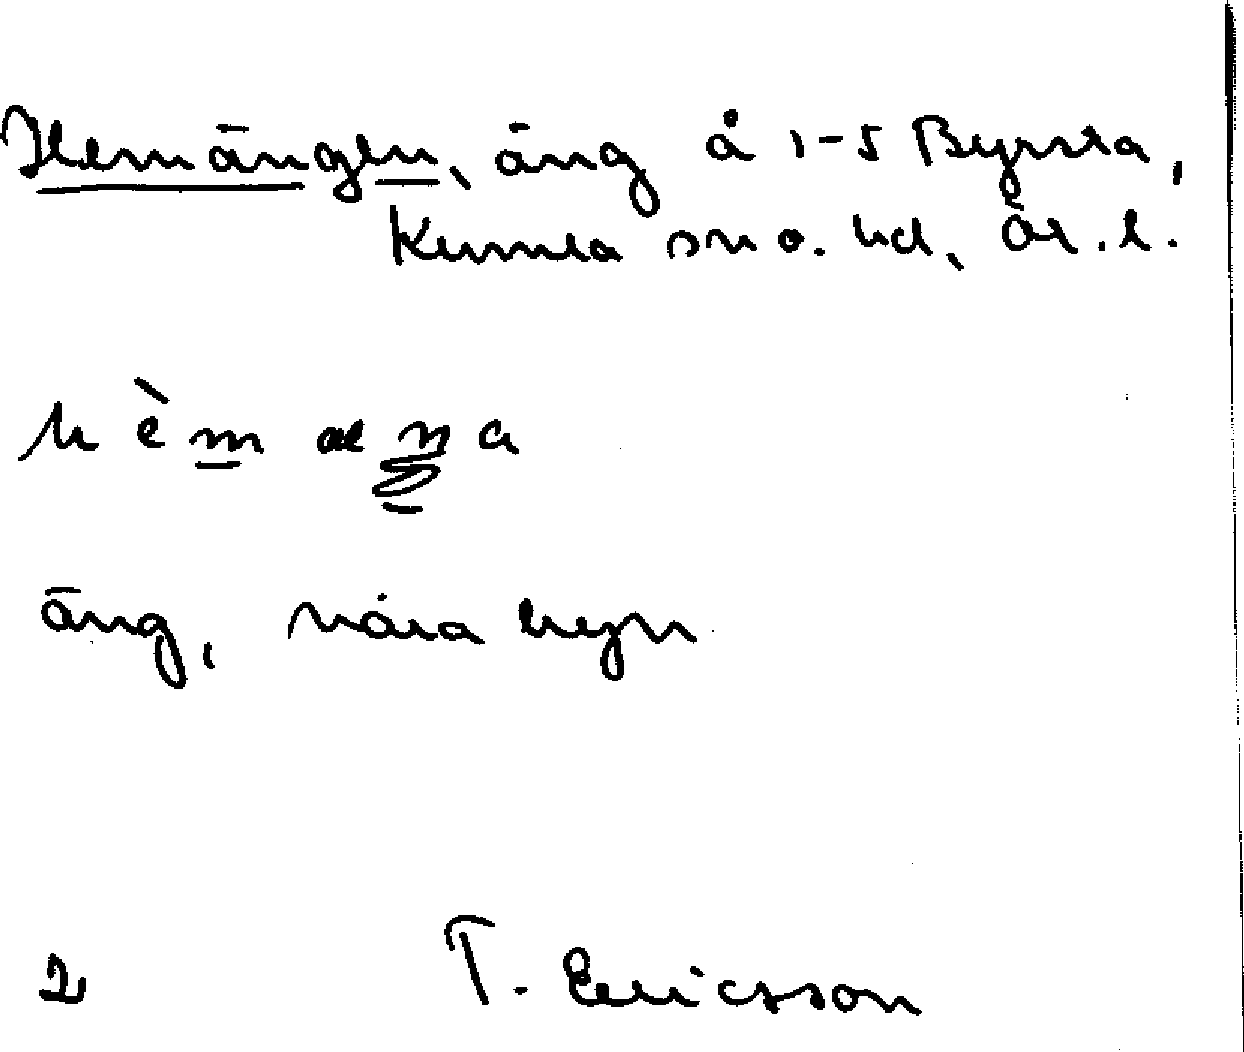 Hemängen, äng å 1-5 Byrsta,
Kumla sn o. hd, Ör. l.
hèmæŋa
äng, nära byn
2 T. Ericsson